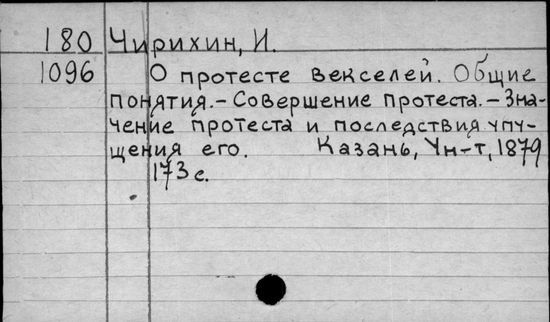 180 Чирихин, И.
1096 О протесте векселей. Общие
понятия.- Совершение протеста.- Зна-
чение протеста и последствия упу-
щения его. Казань, Ун-т, 1879
173 с.